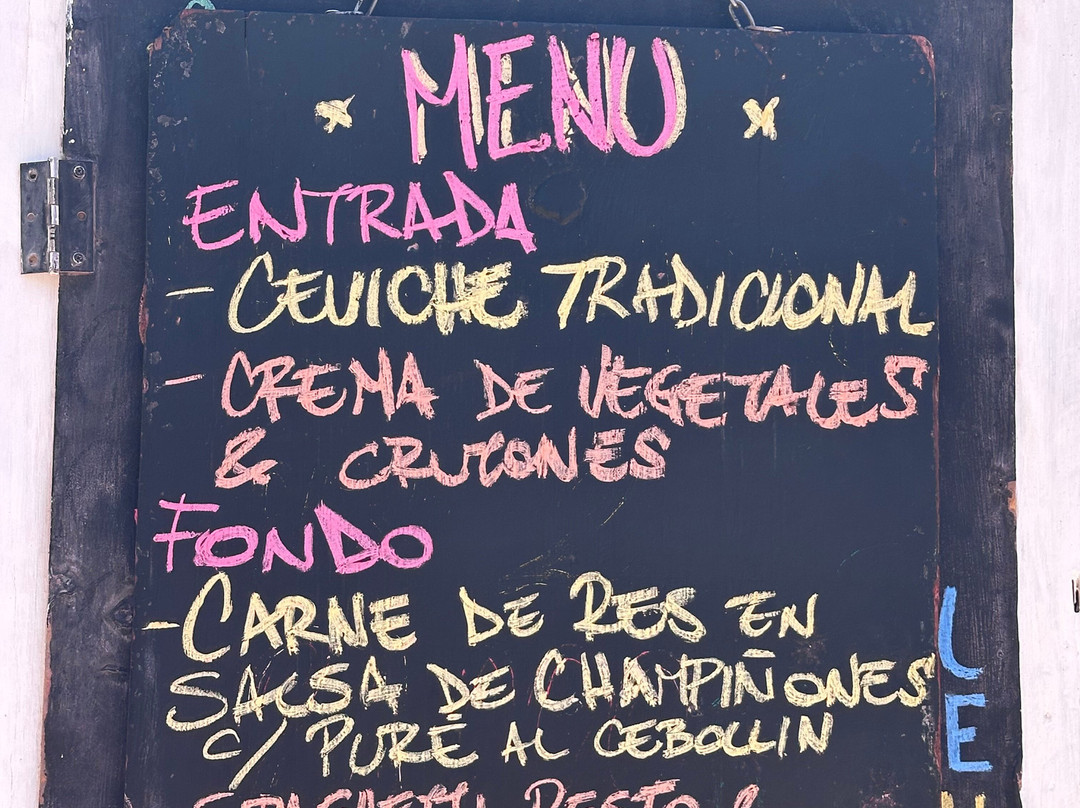 MENU
ENTRADA
- CEVICHE TRADICIONAL
- CREMA DE VEGETALES
& CRUTONES
FONDO
- CARNE DE RES EN
SALSA DE CHAMPIÑONES
C/ PURÉ AL CEBOLLIN